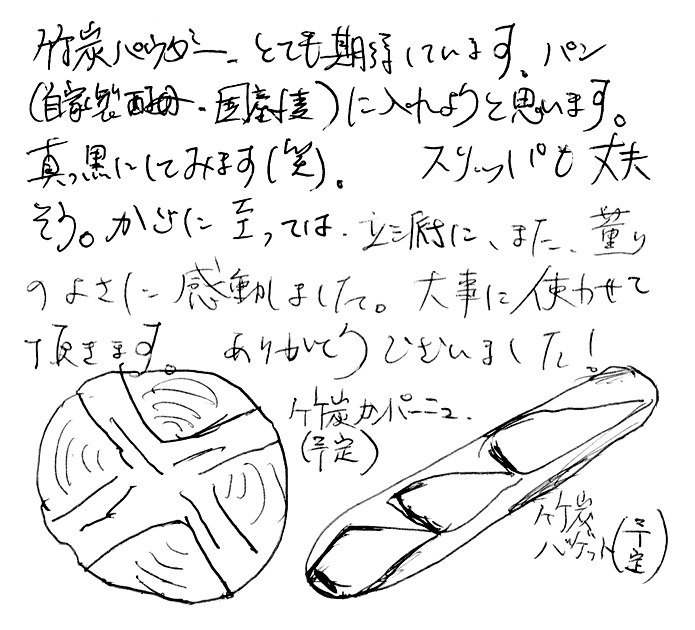 竹炭パウダー、とても期待しています。パン
(自家製酵母・国産小麦)に入れようと思います。
真っ黒にしてみます(笑)。 スリッパも丈夫
そう。かごに至っては、立派に、また、薫り
のよさに感動しました。大事に使わせて
頂きます。 ありがとうございました!
竹炭カンパーニュ。
(予定)
竹炭
バゲット(予定)